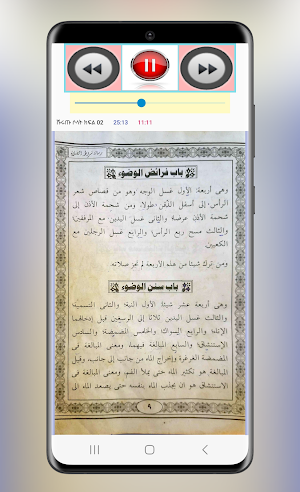 ሹሩጡ ሶላት ክፍል 02 25:13 11:11
باب فرائض الوضوء
وهى أربعة: الأول غسل الوجه وهو من قصاص شعر
الرأس إلى أسفل الذقن طولا، ومن شحمة الأذن إلى
شحمة الأذن عرضة والثانى غسل اليدين مع المرفقين
والثالث مسح ربع الرأس، والرابع غسل الرجلين مع
الكعبين.
ومن ترك شيئا من هذه الأربعة لم تجز صلاته.
باب سنن الوضوء
وهى أربعة عشر شيئا: الأول النية والثانى التسمية
والثالث غسل اليدين ثلاثا إلى الرسغين قبل إدخالهما
الإناء والرابع السواك والخامس المضمضة والسادس
الإستنشاق، والسابع المبالغة فيهما، ومعنى المبالغة فى
المضمضة الغرغرة وإخراج الماء من جانب إلى جانب، وقيل
المبالغة هو تكثير الماء حتى يملأ الفم، ومعنى المبالغة فى
الإستنشاق هو أن يجذب الماء بنفسه حتى يصعد الماء إلى
٩